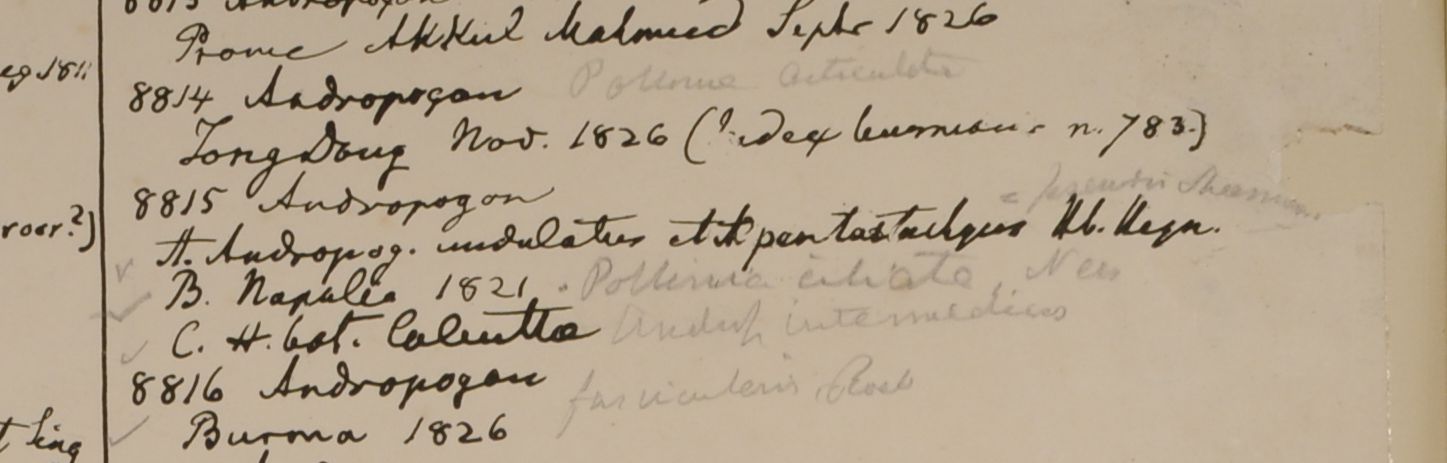 8813 Andropogon
Prome Akkul Mahmud Septr 1826
8814 Andropogon Pollinia articulata
Tong Doug Nov. 1826 ( n. 783.)
8815 Andropogon
A. Andropog. undulatus et A pentastachyus Hb. Heyn.
B. Napalia 1821 . Pollinia ciliata, Nees
C. H. bot. Calcutta intermedius
8816 Andropogon fascicularis, Roxb
Burma 1826